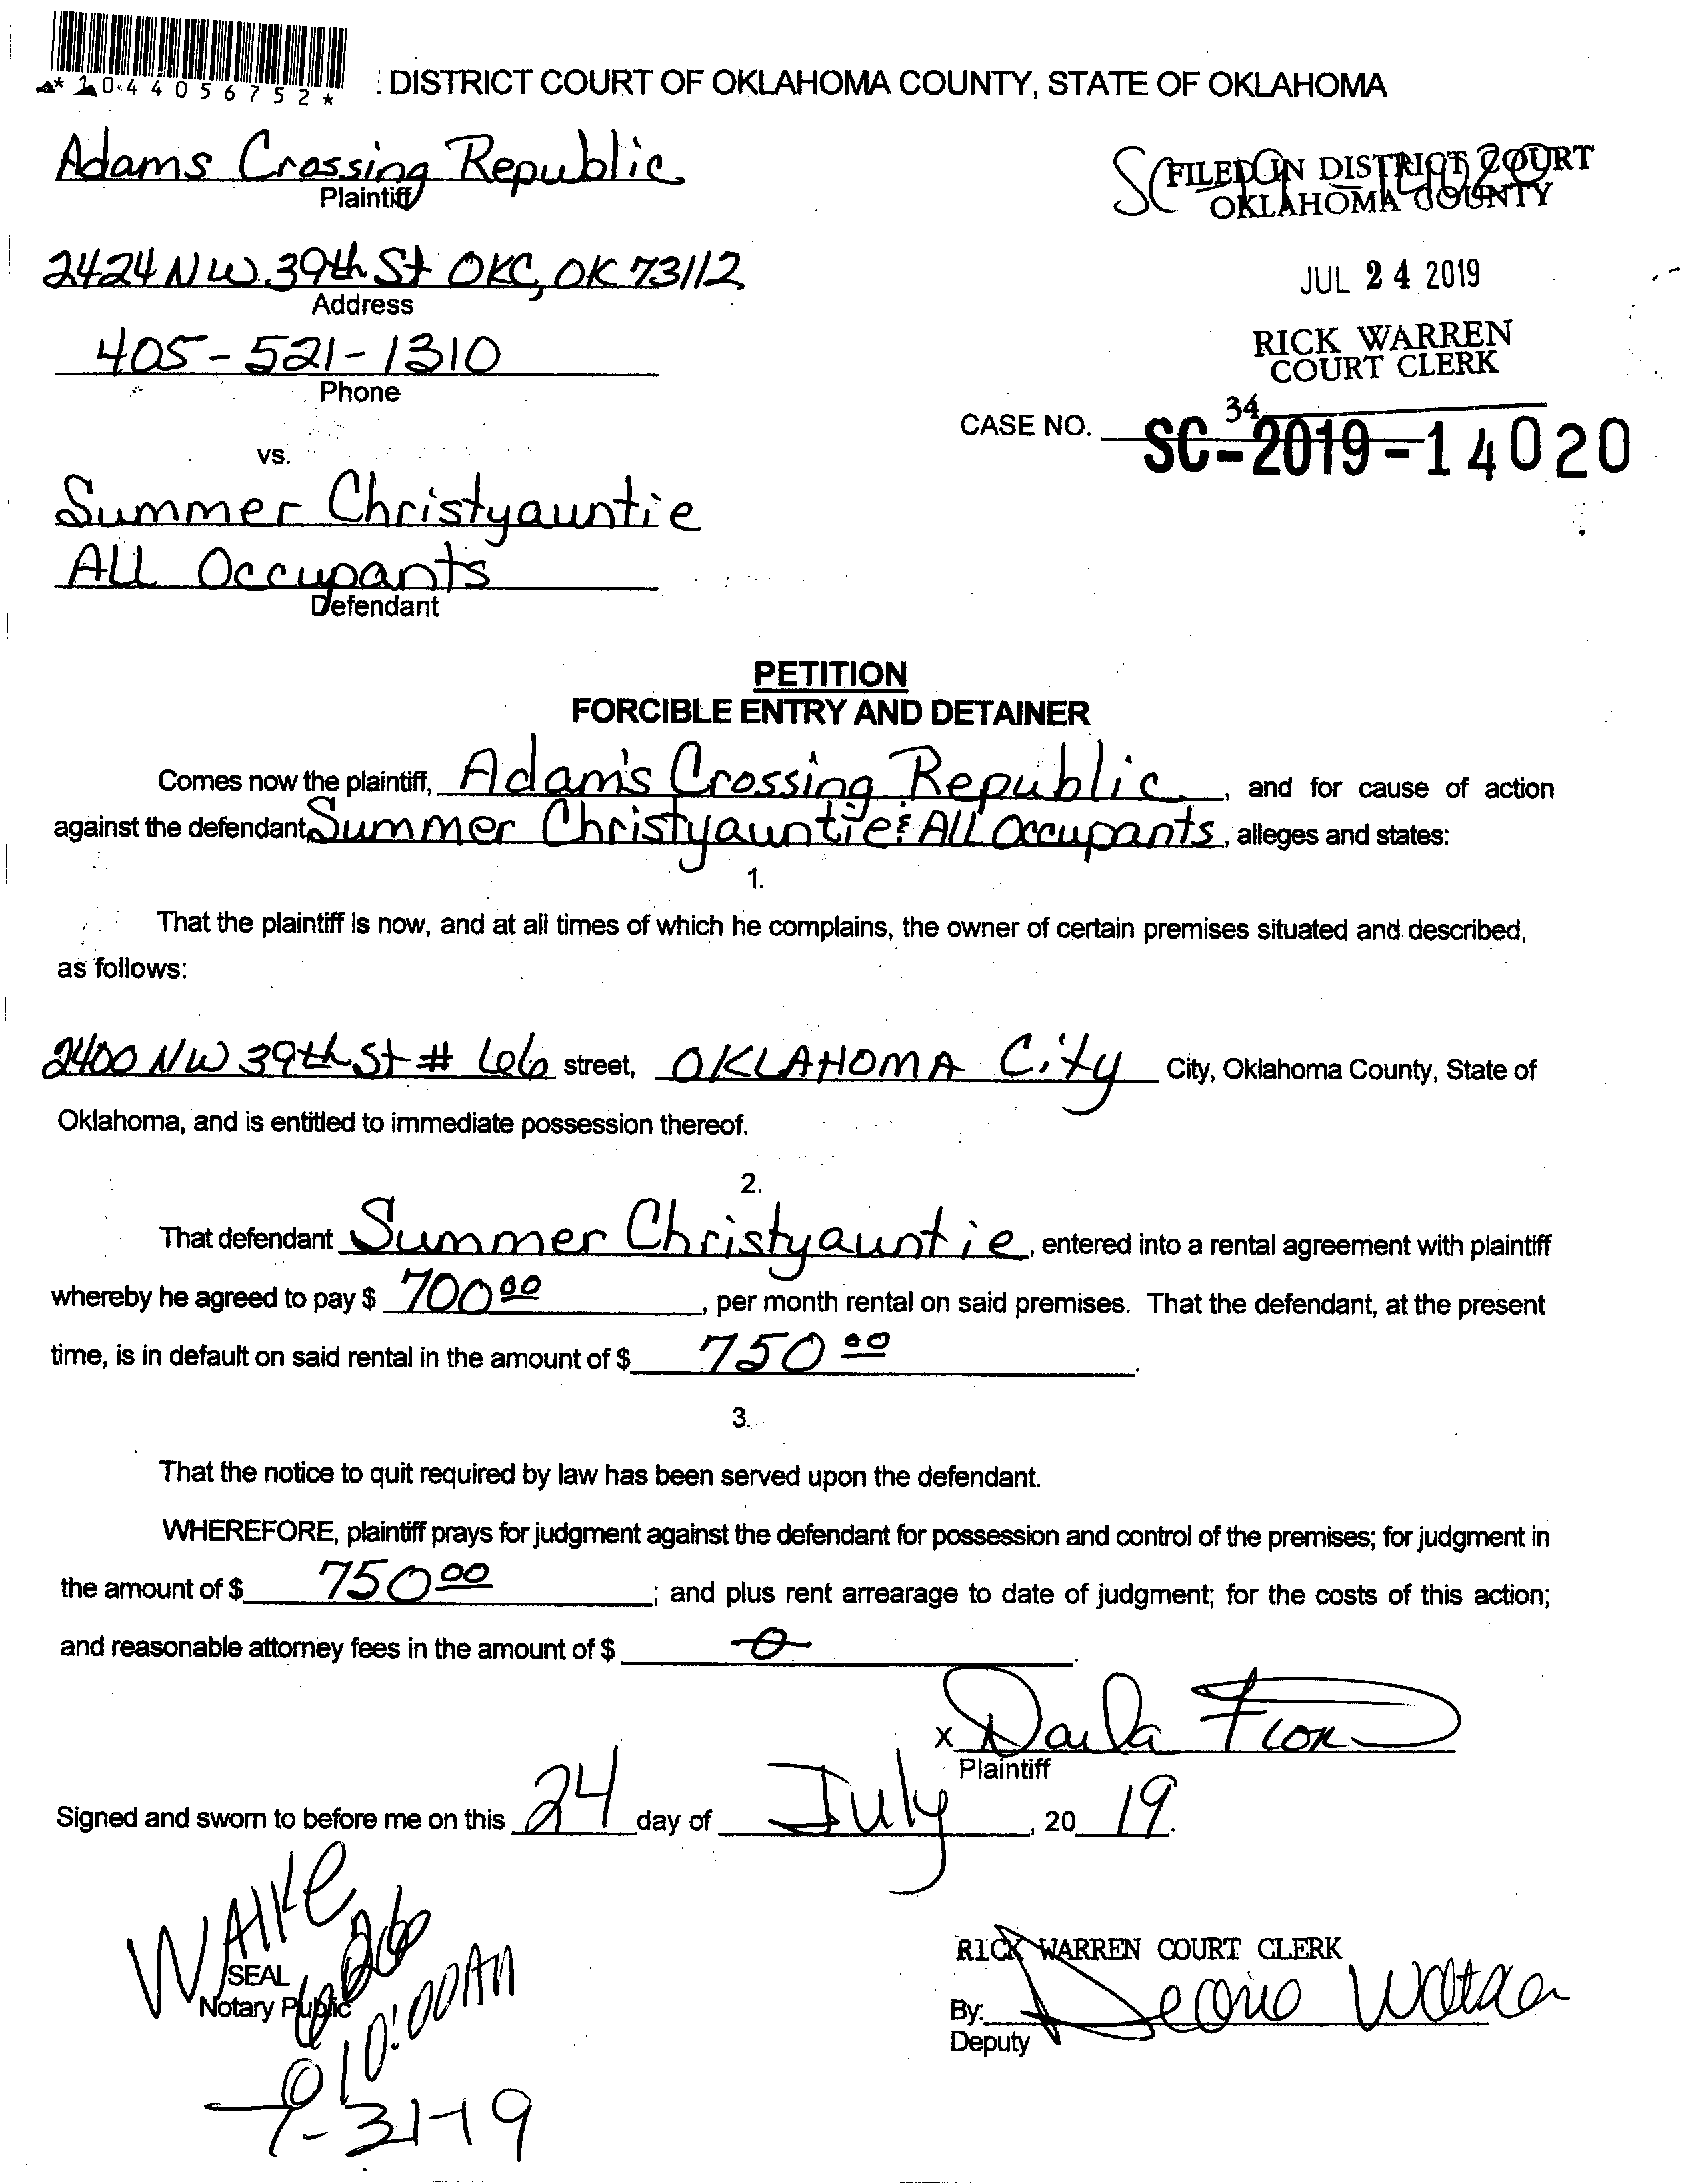 *1044056752*
DISTRICT COURT OF OKLAHOMA COUNTY, STATE OF OKLAHOMA
Adams Crossing Republic
Plaintiff
SC-19-14020
FILED IN DISTRICT COURT
OKLAHOMA COUNTY
2424 NW 39th St OKC, OK 73112
Address
JUL 24 2019
405-521-1310
Phone
RICK WARREN
COURT CLERK
34
CASE NO. SC-2019-14020
vs.
Summer Christyauntie
ALL Occupants
Defendant
PETITION
FORCIBLE ENTRY AND DETAINER
Comes now the plaintiff, Adam's Crossing Republic, and for cause of action
against the defendant, Summer Christyauntie & All Occupants, alleges and states:
1.
That the plaintiff is now, and at all times of which he complains, the owner of certain premises situated and described,
as follows:
2400 NW 39th St # 66 street, OKLAHOMA City City, Oklahoma County, State of
Oklahoma, and is entitled to immediate possession thereof.
2.
That defendant Summer Christyauntie, entered into a rental agreement with plaintiff
whereby he agreed to pay $ 700 00, per month rental on said premises. That the defendant, at the present
time, is in default on said rental in the amount of $ 750 00.
3.
That the notice to quit required by law has been served upon the defendant.
WHEREFORE, plaintiff prays for judgment against the defendant for possession and control of the premises; for judgment in
the amount of $ 750 00; and plus rent arrearage to date of judgment; for the costs of this action;
and reasonable attorney fees in the amount of $ 0.
X Darla
Plaintiff
Signed and sworn to before me on this 24 day of July, 20 19.
WAIKE
SEAL
Notary Public
10:00AM
7-31-19
RICK WARREN COURT CLERK
By:
Deputy